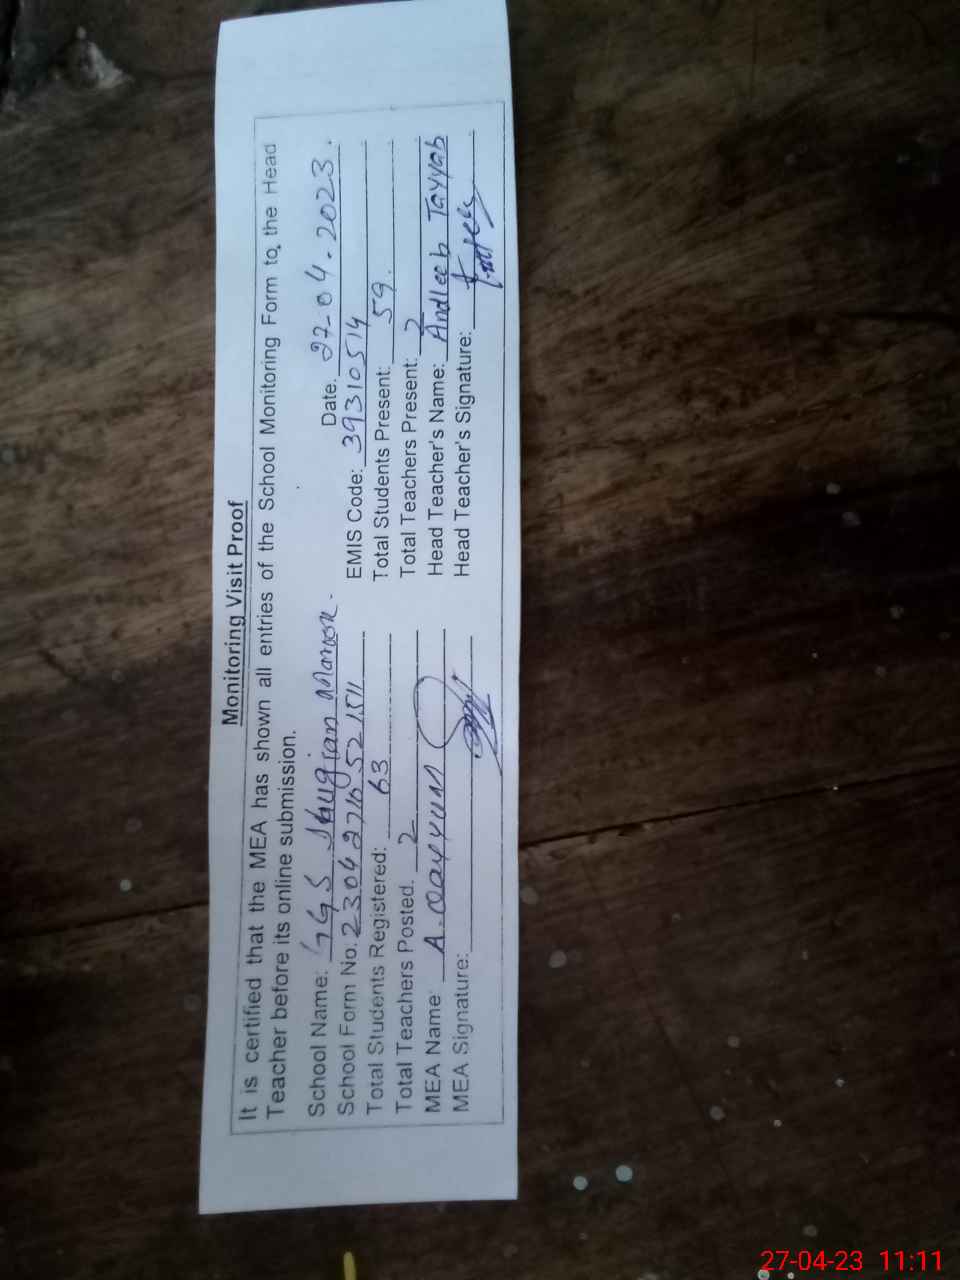 Monitoring Visit Proof
It is certified that the MEA has shown all entries of the School Monitoring Form to the Head
Teacher before its online submission.
School Name: GGS
Date. 27-04-2023.
School Form No. 2304271052
EMIS Code: 39310514
Total Students Registered: 63
Total Students Present: 59.
Total Teachers Posted. 2
Total Teachers Present: 2
MEA Name: A. Qayyum
Head Teacher's Name: Andleeb Tayyab
MEA Signature:
Head Teacher's Signature:
27-04-23 11:11